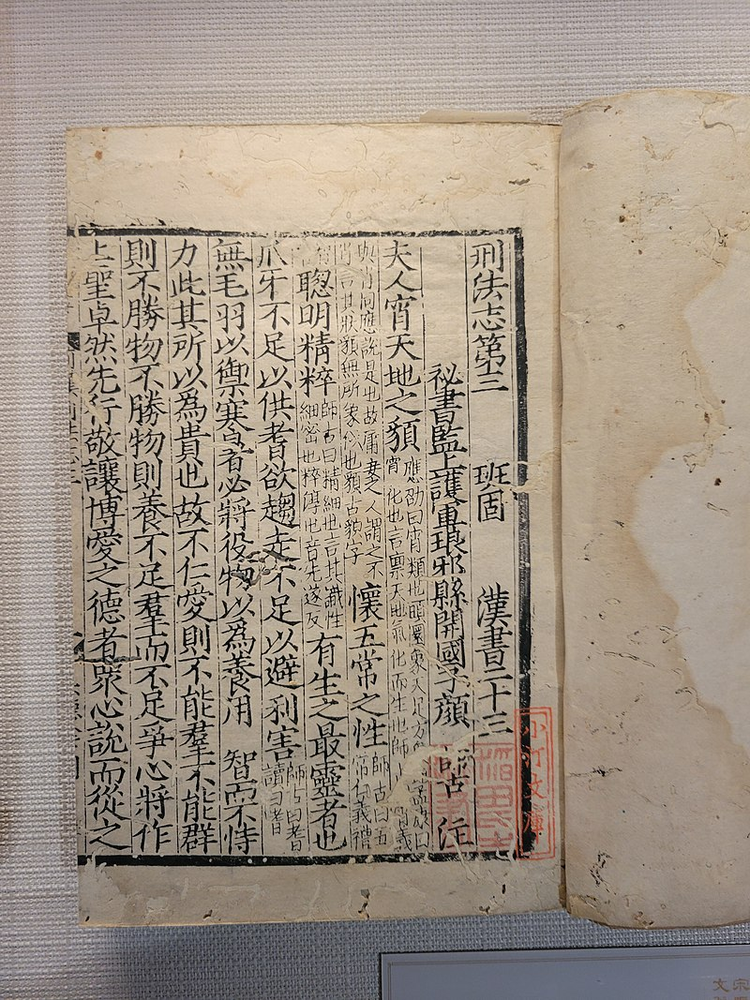 刑法志第三 班固 漢書二十三
祕書監上護軍琅邪縣開國子顏 古 注
夫人宵天地之䫉
應劭曰宵類也頭圜象天足方
宵化也言稟天地氣化而生也師古曰宵義
與肖同應說是也故庸妾之人謂之不
肖言其狀䫉無所象似也䫉古貌字
懷五常之性
師古曰五
常仁義禮
聰明精粹
師古曰精細也言其識性
細密也粹淳也音先遂反
有生之最靈者也
爪牙不足以供耆欲趨走不足以避利害
師古曰耆
讀曰嗜
無毛羽以禦寒暑必將役物以為養用 智而不恃
力此其所以為貴也故不仁愛則不能羣不能群
則不勝物不勝物則養不足羣而不足爭心將作
上聖卓然先行敬讓博愛之德者眾心說而從之
小汀文庫